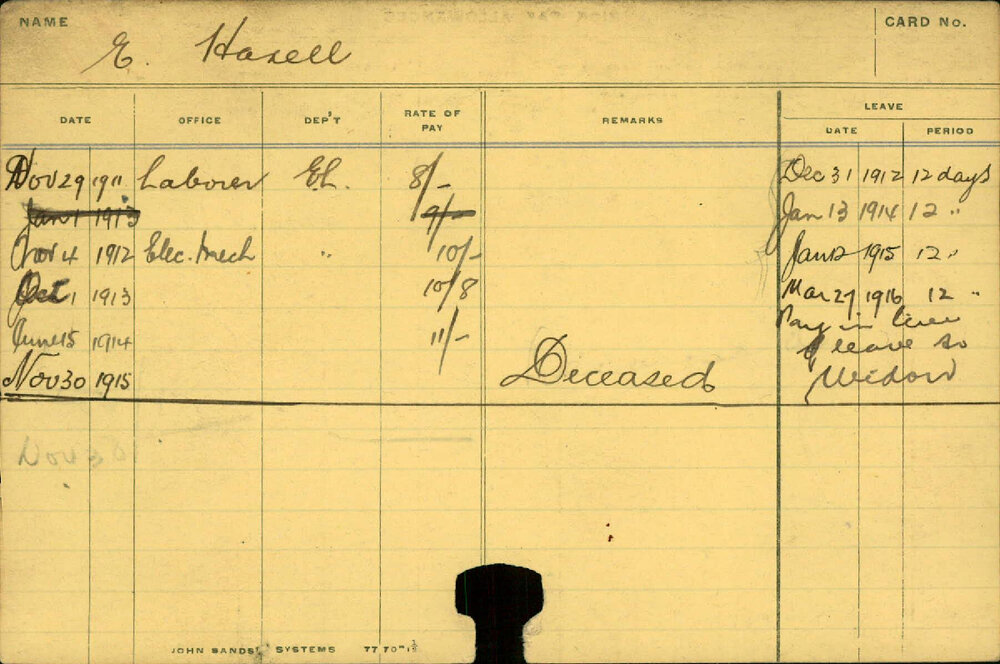 NAME E. Hasell CARD No.
DATE OFFICE DEP'T RATE OF PAY REMARKS LEAVE
DATE PERIOD
Nov 29 1911 Laborer El. 8/- Dec 31 1912 12 days
Jan 1 1913 9/- Jan 13 1914 12 "
Nov 4 1912 Elec. Mech " 10/- Jan 12 1915 12 "
Oct 1 1913 10/8 Mar 27 1916 12 "
June 15 1914 11/- Pay in lieu
of leave to
Nov 30 1915 Deceased Widow
JOHN SANDS SYSTEMS